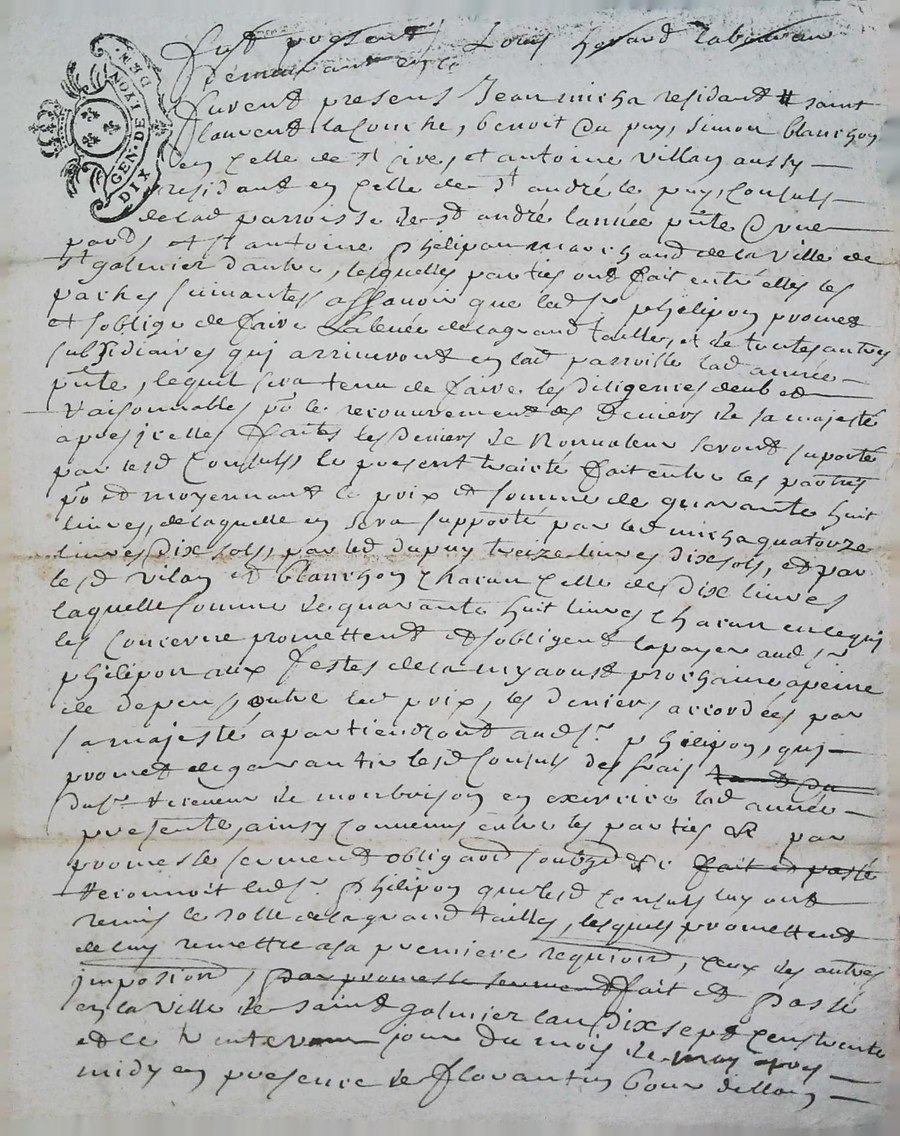 GEN. DE LYON
DIX DEN.
fust present Louis
demeurant en la
furent presens Jean micha residant # saint
laurent la conche, benoit du puy, simon blanchon
en celle de st cire, et antoine villan aussy
residant en celle de st andré le puy, consuls
de lad parroisse de st andré lannée pnte d'une
part, et sr antoine phelipon marchand de la ville de
st galmier d'autre, lesquelles parties ont fait entre elles les
paches suivantes assavoir que led sr phelipon promet
et soblige de faire la levée de la grand taille, et de toutes autres
subsidiaires qui arriveront en lad parroisse lad année
pnte, lequel sera tenu de faire les diligences deub et
raisonnables pr le recouvrement des deniers de sa majesté
apres icelles faites les deniers de nonvaleur seront suporté
par lesd consuls le present traité fait entre les parties
pr et moyennant le prix et somme de quarante huit
livres, de laquelle en sera supporté par led micha quatorze
livres dix sols, par led dupuy treize livres dix sols, et par
lesd vilan et blanchon chacun celle de dix livres
laquelle somme de quarante huit livres chacun en ce qui
les concerne promettent et sobligent la payer aud sr
phelipon aux festes de la my aoust prochaine a peine
de depens, outre led prix, les deniers accordées par
sa majesté apartiendront aud sr phelipon, qui
promet de garantir lesd consuls des frais
du sr receveur de monbrison en exercice lad année
presente, ainsy convenu entre les parties & par
promesse serment obligaon soubz &c fait et passé
reconnoit led sr phelipon que lesd consuls luy ont
remis le rolle de la grand taille, lesquels promettent
de luy remettre a sa premiere requision, ceux des autres
imposion, par promesse serment fait et passé
en la ville de saint galmier lan dix sept cens trente
et le jour du mois de may
midy en presence de florantin bourdillon